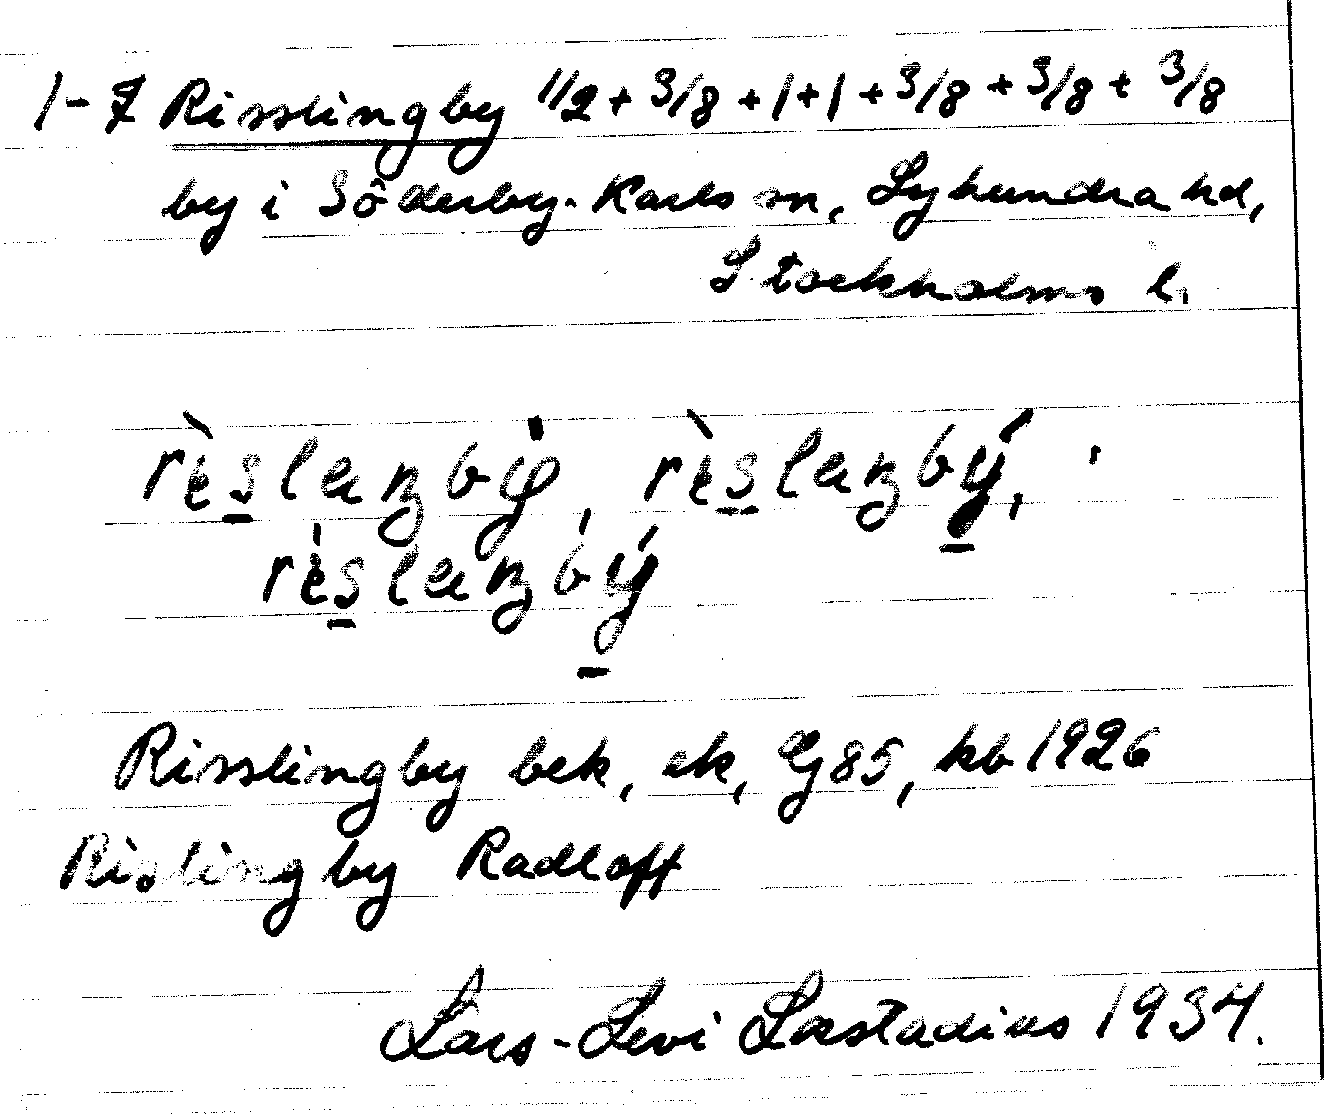 1-7 Risslingby 1/2 + 3/8 + 1 + 1 + 3/8 + 3/8 + 3/8
by i Söderby-Karls sn, Lyhundra hd,
Stockholms l.
Risslingby bek, ek, Gj85, kb 1926
Rislingby Radloff
Lars-Levi Læstadius 1934.